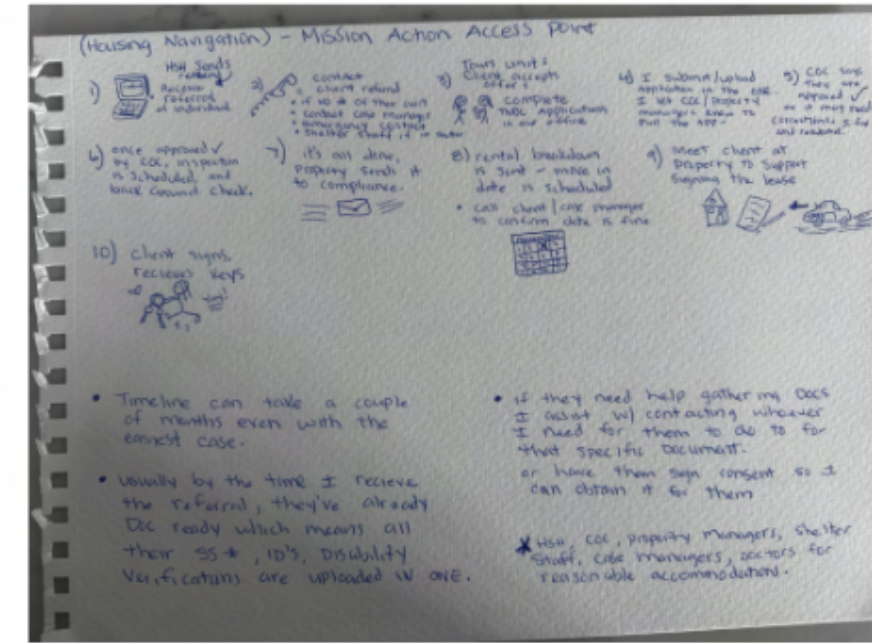 (Housing Navigation) - Mission Action Access Point
1) HSH Sends
Receive
referral
of individual
2) contact
client
• if no # of their own
• contact case manager
• emergency contact
• shelter staff if in
3) Tours unit:
Client accepts
offer:
complete
application
in our office
4) I submit/upload
application in the ONE
I let COC/property
managers know to
the app.
5) COC says
they are
approved ✓
or
and
6) once approved ✓
by COC, inspection
is scheduled, and
back ground check.
7) it's all done,
property sends it
to compliance.
8) rental breakdown
is sent - move in
date is scheduled
• call client / case manager
to confirm date is fine
9) meet client at
property to support
signing the lease
10) client signs,
recieves keys
• Timeline can take a couple
of months even with the
easiest case.
• usually by the time I recieve
the referral, they've already
Doc ready which means all
their SS #, ID's, Disability
Verifications are uploaded in ONE.
• if they need help gathering Docs
I assist w/ contacting whoever
I need for them to do to for
that specific Document.
or have them sign consent so I
can obtain it for them
* HSH, COC, property managers, Shelter
Staff, case managers, doctors for
reasonable accommodations.